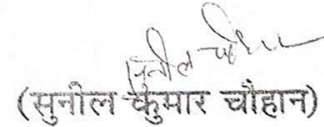 सुनील चौहान
(सुनील कुमार चौहान)